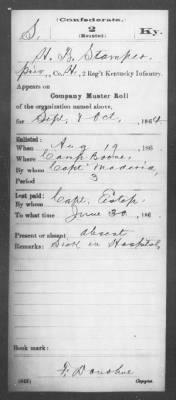 (Confederate.)
S. 2 Ky.
(Mounted.)
H. B. Stamper
Co. H., 2 Reg't Kentucky Infantry.
Appears on
Company Muster Roll
of the organization named above,
for Sept. & Oct., 1864
Enlisted:
When Aug 19, 186
Where Camp Boone,
By whom Capt Maderia,
Period 3
Last paid:
By whom Capt. Estep.
To what time June 30, 186
Present or absent absent
Remarks: Sick in Hospital,
Book mark:
J. Donohue
(642) Copyist.